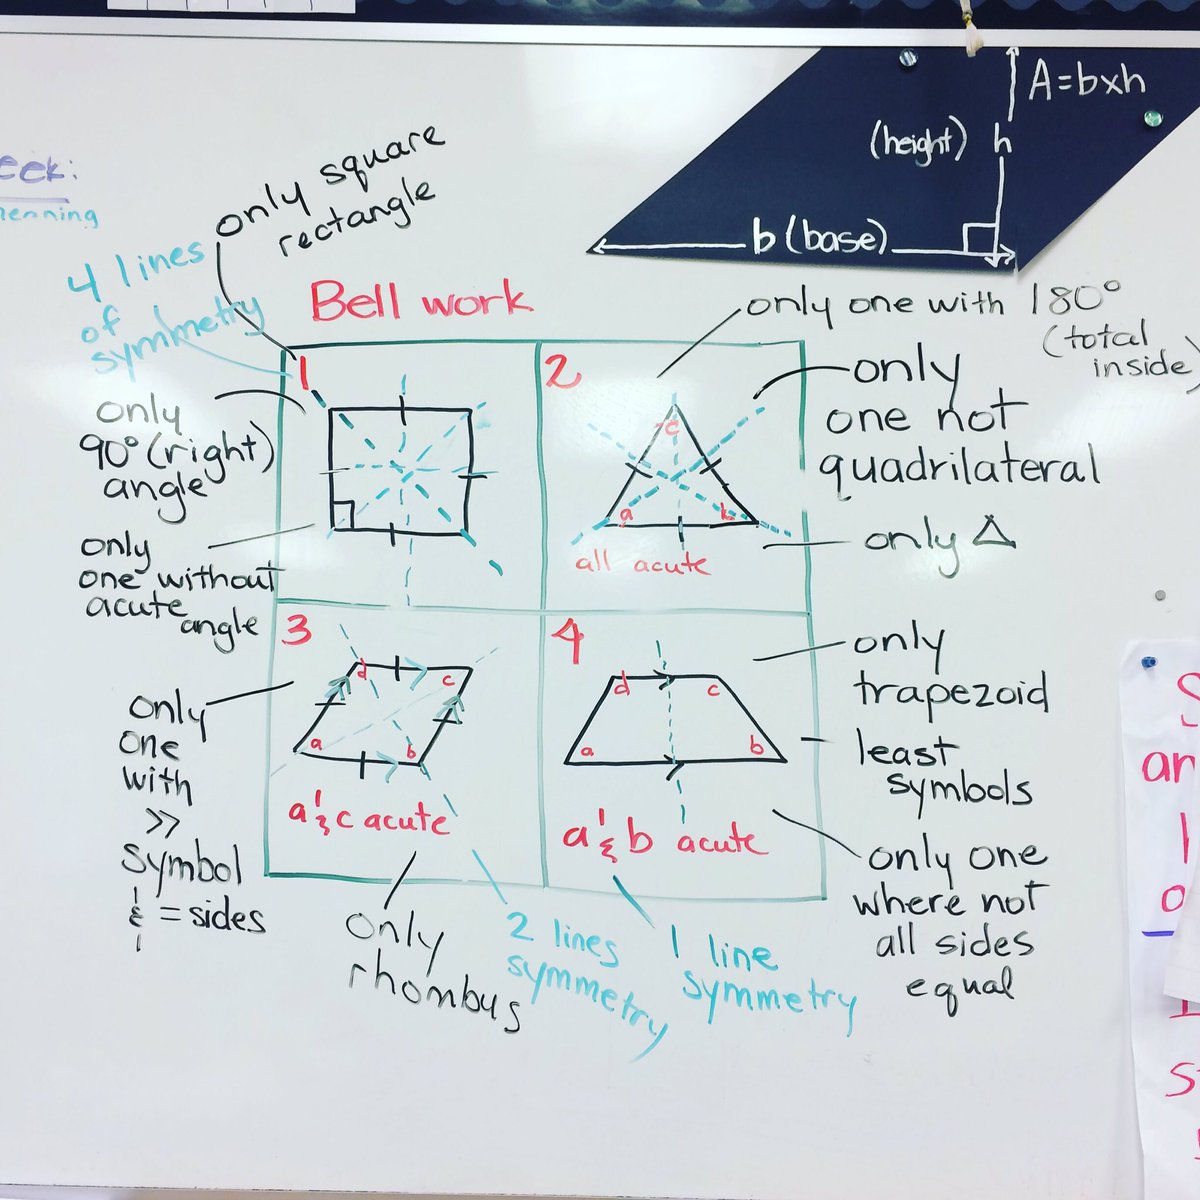 A=bxh
(height) h
b (base)
eek:
only square
rectangle
4 lines
of
symmetry
Bell work
only one with 180°
(total
inside)
1
only
90° (right)
angle
only
one without
acute
angle
2
c
a
b
all acute
only
one not
quadrilateral
only △
3
d
c
a
b
a & c acute
only
one
with
>>
symbol
& = sides
only
rhombus
2 lines
symmetry
4
d
c
a
b
a & b acute
1 line
symmetry
only
trapezoid
least
symbols
only one
where not
all sides
equal
S
ar